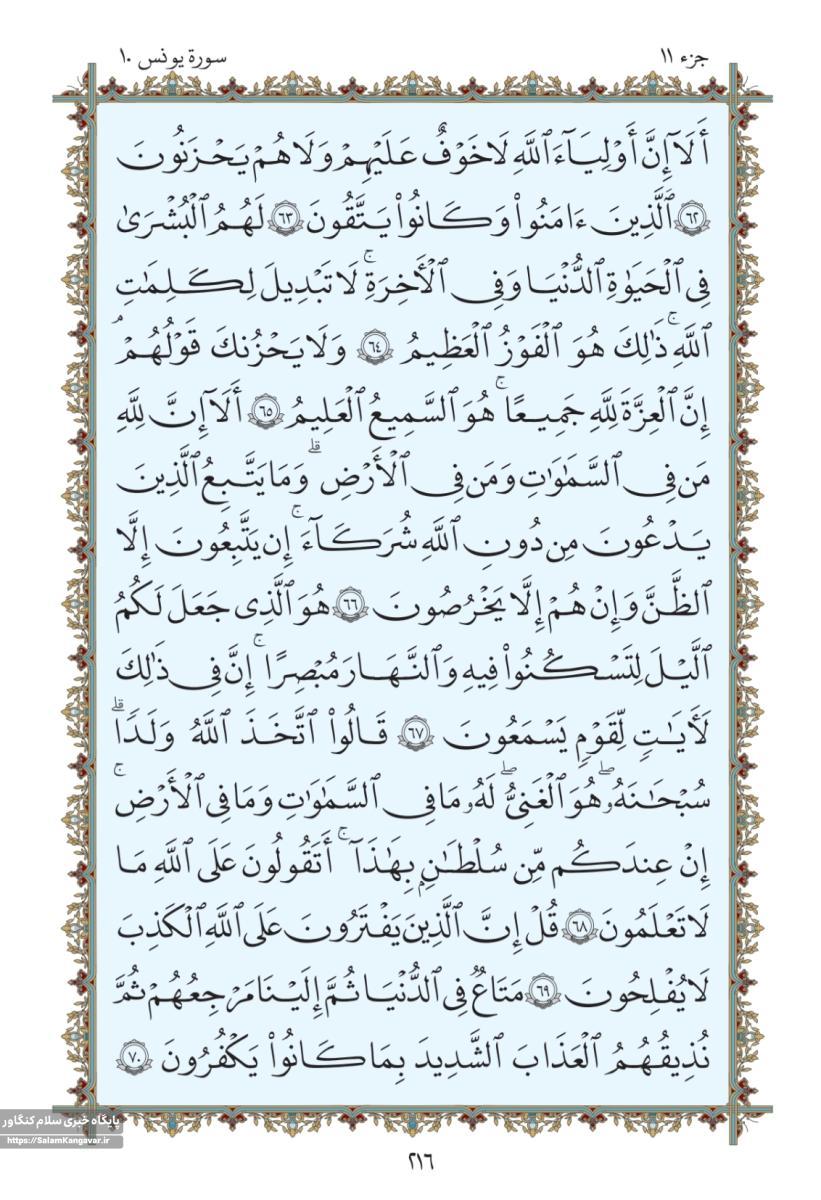 جزء ١١
سورة يونس ١٠
أَلَآ إِنَّ أَوْلِيَآءَ ٱللَّهِ لَا خَوْفٌ عَلَيْهِمْ وَلَا هُمْ يَحْزَنُونَ
٦٢ ٱلَّذِينَ ءَامَنُواْ وَكَانُواْ يَتَّقُونَ ٦٣ لَهُمُ ٱلْبُشْرَىٰ
فِى ٱلْحَيَوٰةِ ٱلدُّنْيَا وَفِى ٱلْأَخِرَةِ ۚ لَا تَبْدِيلَ لِكَلِمَٰتِ
ٱللَّهِ ۚ ذَٰلِكَ هُوَ ٱلْفَوْزُ ٱلْعَظِيمُ ٦٤ وَلَا يَحْزُنكَ قَوْلُهُمْ ۘ
إِنَّ ٱلْعِزَّةَ لِلَّهِ جَمِيعًا ۚ هُوَ ٱلسَّمِيعُ ٱلْعَلِيمُ ٦٥ أَلَآ إِنَّ لِلَّهِ
مَن فِى ٱلسَّمَٰوَٰتِ وَمَن فِى ٱلْأَرْضِ ۗ وَمَا يَتَّبِعُ ٱلَّذِينَ
يَدْعُونَ مِن دُونِ ٱللَّهِ شُرَكَآءَ ۚ إِن يَتَّبِعُونَ إِلَّا
ٱلظَّنَّ وَإِنْ هُمْ إِلَّا يَخْرُصُونَ ٦٦ هُوَ ٱلَّذِى جَعَلَ لَكُمُ
ٱلَّيْلَ لِتَسْكُنُواْ فِيهِ وَٱلنَّهَارَ مُبْصِرًا ۚ إِنَّ فِى ذَٰلِكَ
لَأَيَٰتٍ لِّقَوْمٍ يَسْمَعُونَ ٦٧ قَالُواْ ٱتَّخَذَ ٱللَّهُ وَلَدًا ۗ
سُبْحَٰنَهُۥ ۖ هُوَ ٱلْغَنِىُّ ۖ لَهُۥ مَا فِى ٱلسَّمَٰوَٰتِ وَمَا فِى ٱلْأَرْضِ ۚ
إِنْ عِندَكُم مِّن سُلْطَٰنٍۭ بِهَٰذَآ ۚ أَتَقُولُونَ عَلَى ٱللَّهِ مَا
لَا تَعْلَمُونَ ٦٨ قُلْ إِنَّ ٱلَّذِينَ يَفْتَرُونَ عَلَى ٱللَّهِ ٱلْكَذِبَ
لَا يُفْلِحُونَ ٦٩ مَتَاعٌ فِى ٱلدُّنْيَا ثُمَّ إِلَيْنَا مَرْجِعُهُمْ ثُمَّ
نُذِيقُهُمُ ٱلْعَذَابَ ٱلشَّدِيدَ بِمَا كَانُواْ يَكْفُرُونَ ٧٠
پایگاه خبری سلام کنگاور
https://SalamKangavar.ir
٢١٦